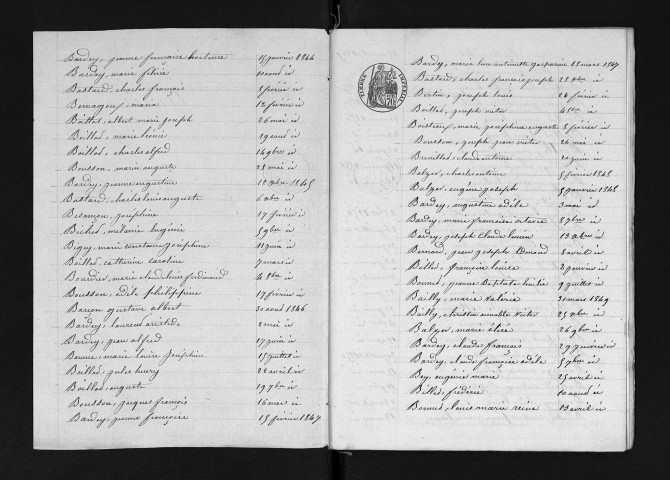 Bardey, jeanne françoise hortense 15 janvier 1844
Bardey, marie félicie 10 aout id
Bastard, charles françois 5 février id
Bernasson, marie 12 février id
Boillot, albert marie joseph 26 mai id
Boillod, marie léonie 29 aout id
Boillod, charles alfred 14 9bre id
Bousson, marie auguste 25 mai id
Bardey, jeanne augustine 12 1845
Bastard, charles louis auguste 6 xbre id
Besançon, joséphine 17 février id
Bichet, mélanie eugénie 5 9bre id
Bigey, marie constance joséphine 11 juin id
Boillod, catherine caroline 7 mars id
Bourdier, marie claud louis ferdinand 4 8bre id
Bousson, adèle philippine 17 février id
Baron gustave albert 30 aout 1846
Bardey, laurent aristide 2 mai id
Bardey, jean alfred 17 juin id
Baune, marie louise joséphine 15 juillet id
Boillod, jules henry 22 avril id
Boillod, auguste 19 7bre id
Bousson, jacques françois 16 mars id
Bardey, jeanne françoise 15 février 1847
Bardey, marie antoinette gasparine 18 mars 1847
Bastard, charles françois joseph 25 id
Bertin, joseph louis 26 février id
Boillod, joseph victor 4 id
Boisson, marie joséphine auguste 5 février id
Bousson, joseph jean victor 26 mai id
Brenillod, claud antoine 20 juin id
Balzer, charles antoine 5 février 1848
Balzer, eugène joseph 5 janvier 1848
Bardey, augustine adèle 3 mai id
Bardey, marie françoise octavie 8 9bre id
Bardey, joseph claude lucien 13 xbre id
Bernard, jean joseph Edmond 8 avril id
Billet, françoise louise 2 janvier id
Bonnet, jeanne Baptiste émilie 9 juillet id
Bailly, marie valérie 31 mars 1849
Bailly, christin aimable victor 25 xbre id
Balzer marie élise 26 9bre id
Bardey, claude françois 29 janvier id
Bardey, claude françoise adèle 5 9bre id
Bey, eugénie marie 25 avril id
Billet, frédéric 10 aout id
Bonnet, louis marie reine 13 avril id